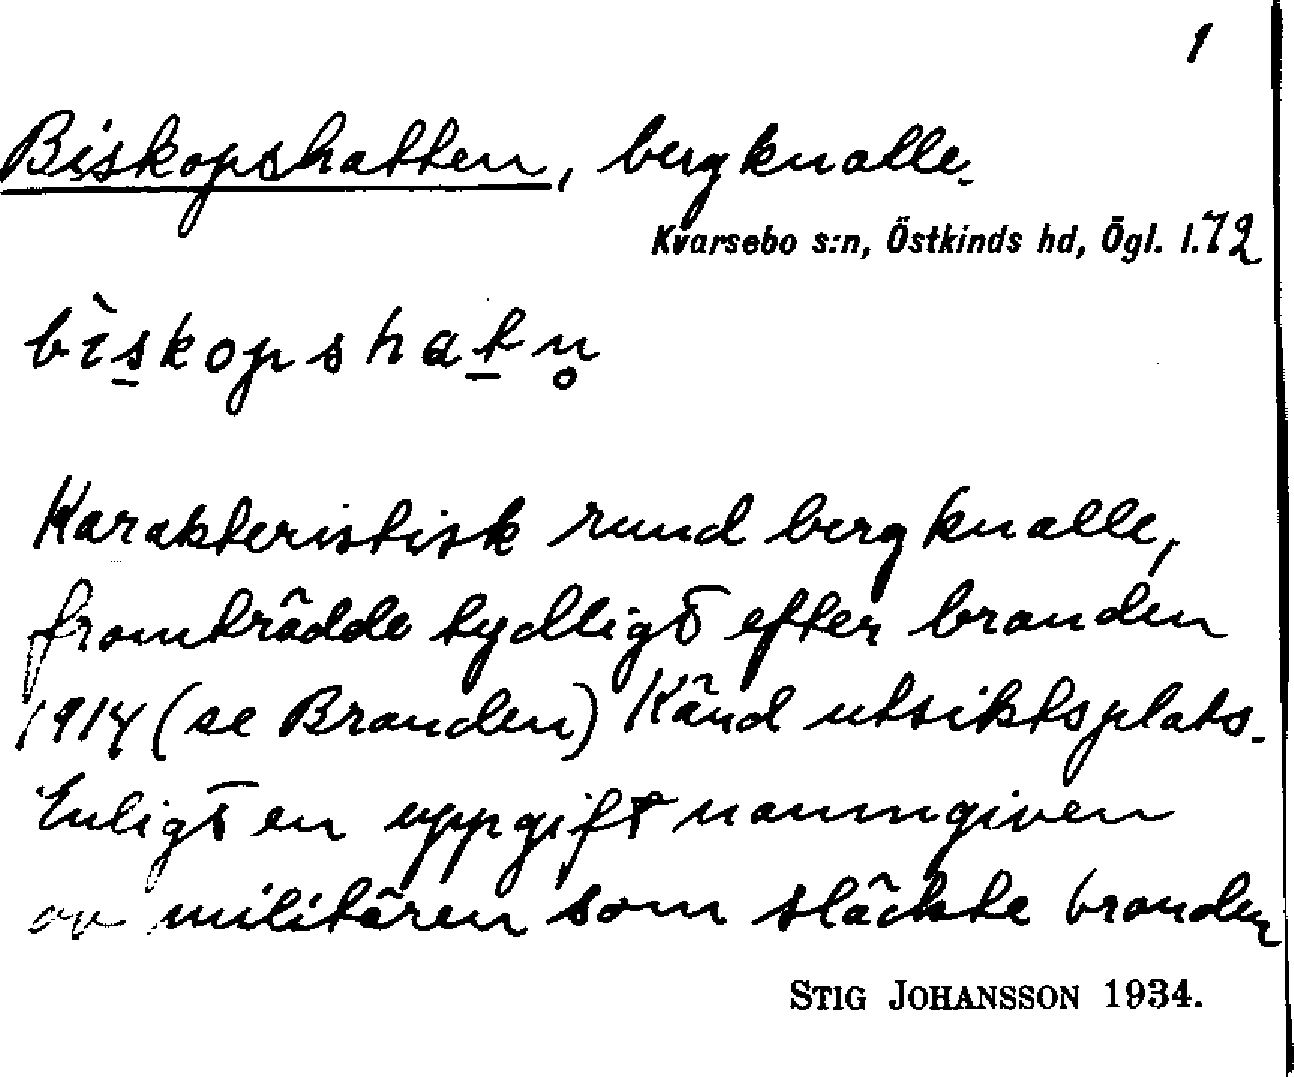 1
Biskopshatten, bergknalle.
Kvarsebo s:n, Östkinds hd, Ögl. l. 72
bìskopshatn̥
Karakteristisk rund bergknalle,
framträdde tydligt efter branden
1914 (se Branden) Känd utsiktsplats.
Enligt en uppgift namngiven
av militären som släckte branden
STIG JOHANSSON 1934.